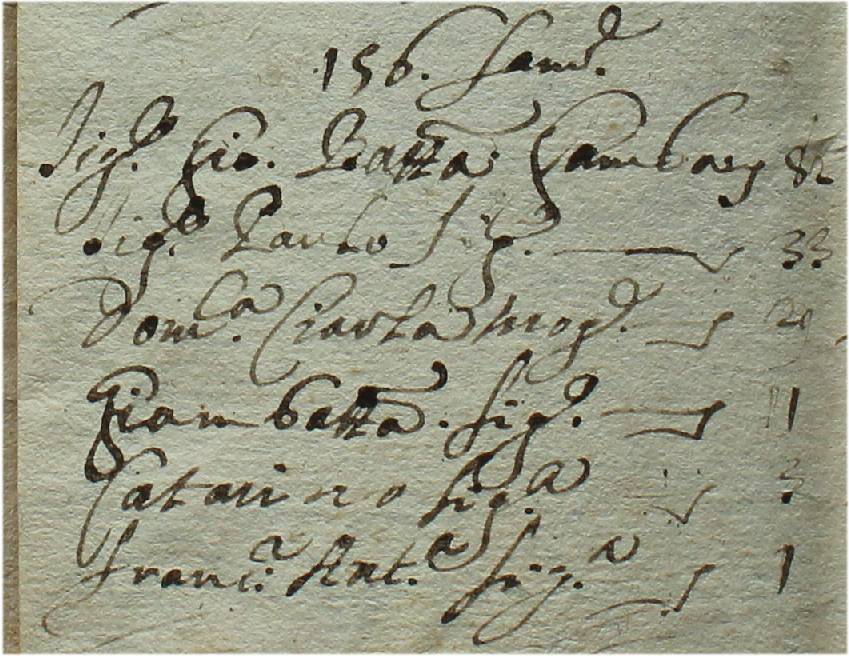 156. Fam.ª
Sig.r Gio. Batta Gambary 82
Sig.r Paulo fig.º 33
Dom.ca Ciarla mog.e 29
Giambatta. fig.º 11
Catarina fig.a 3
Franc.ª Ant.ª fig.ª 1